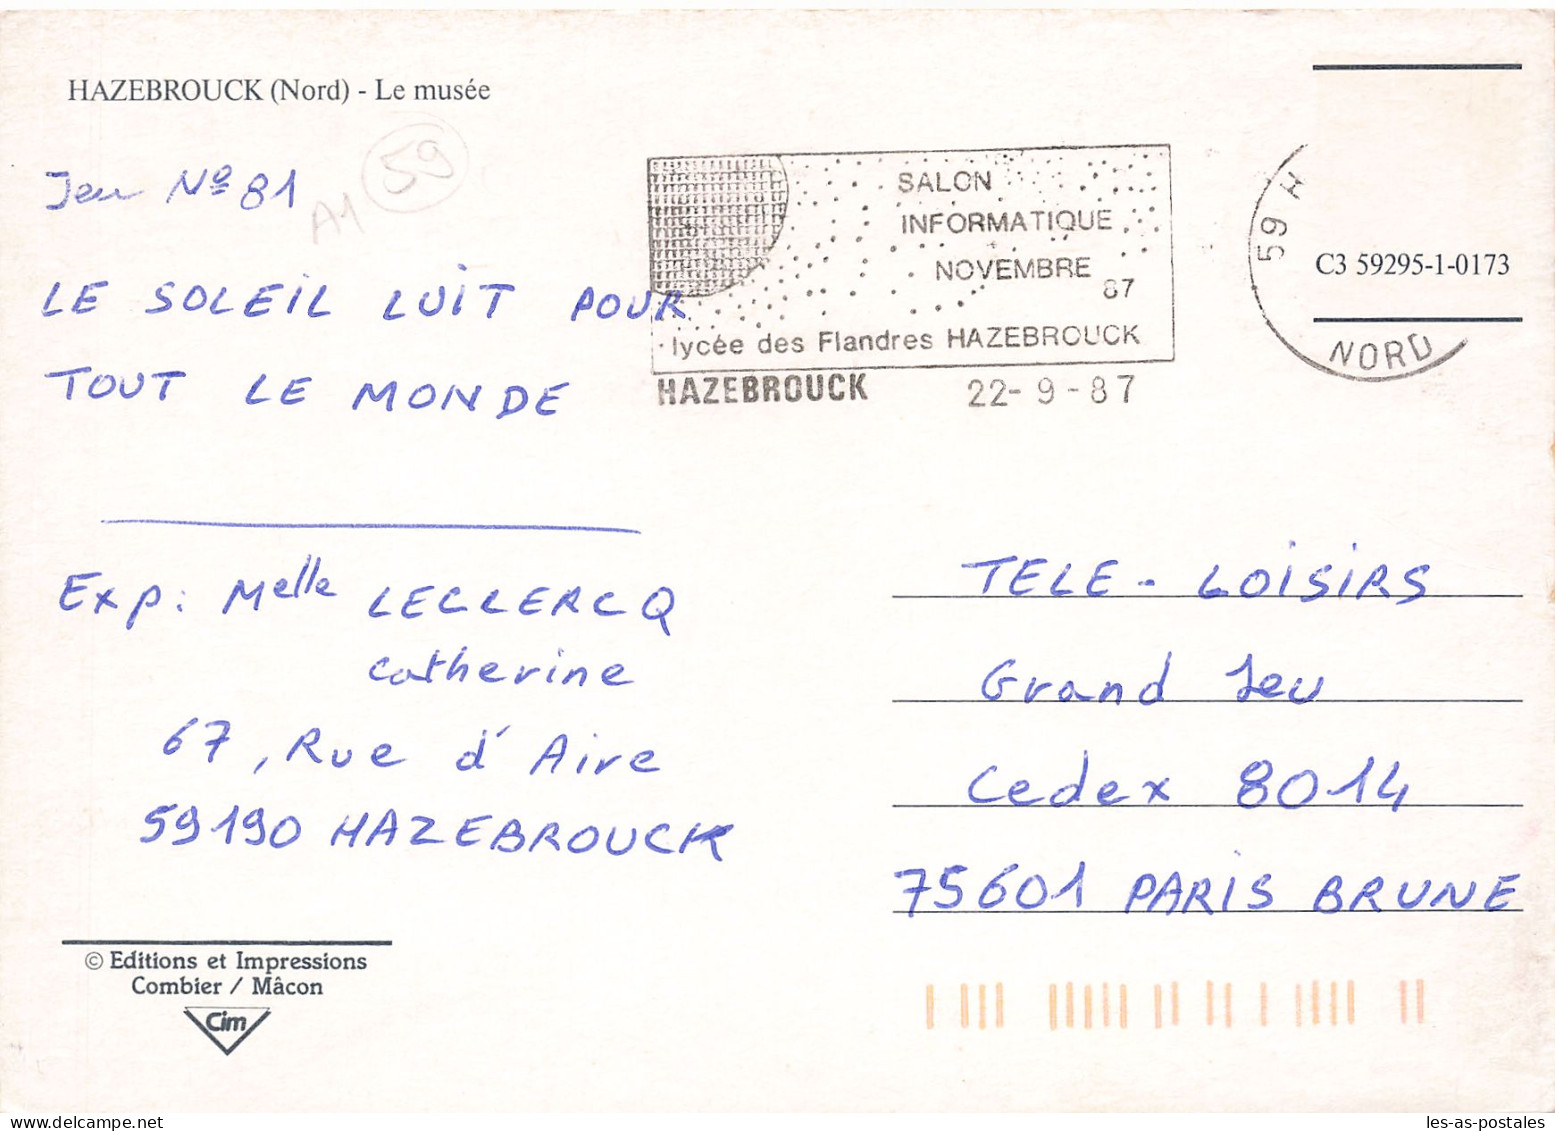 HAZEBROUCK (Nord) - Le musée
59
A1
Jeu Nº 81
LE SOLEIL LUIT POUR
TOUT LE MONDE
SALON
INFORMATIQUE
NOVEMBRE
87
lycée des Flandres HAZEBROUCK
HAZEBROUCK 22-9-87
59 H
NORD
C3 59295-1-0173
Exp: Melle LECLERCQ
Catherine
67, Rue d'Aire
59190 HAZEBROUCK
TELE-LOISIRS
Grand Jeu
Cedex 8014
75601 PARIS BRUNE
© Editions et Impressions
Combier / Mâcon
Cim
les-as-postales